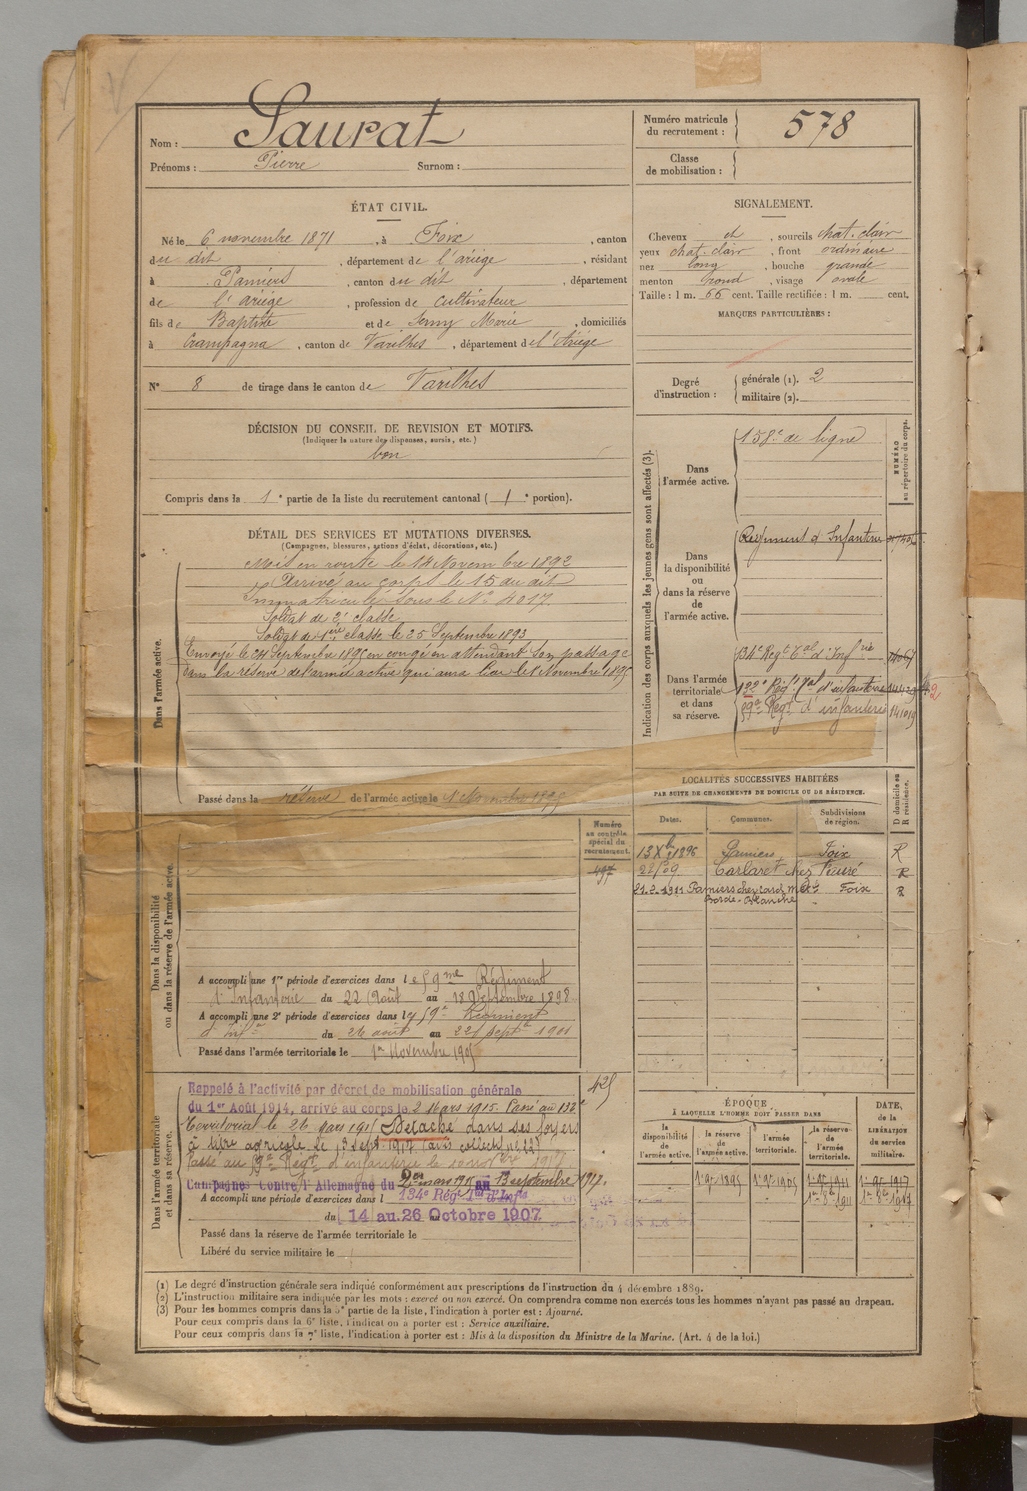 Nom : Saurat
Prénoms : Pierre Surnom :
Numéro matricule du recrutement : 578
Classe de mobilisation :
ÉTAT CIVIL.
Né le 6 novembre 1871, à Foix, canton
du dit, département de l'ariège, résidant
à Pamiers, canton du dit, département
de l'ariège, profession de cultivateur
fils de Baptiste et de Marie, domiciliés
à Crampagna, canton de Varilhes, département de l'Ariège
N° 8 de tirage dans le canton de Varilhes
SIGNALEMENT.
Cheveux et, sourcils chat. clair
yeux chat. clair, front ordinaire
nez long, bouche grande
menton rond, visage ovale
Taille : 1 m. 66 cent. Taille rectifiée : 1 m. cent.
MARQUES PARTICULIÈRES :
Degré d'instruction : générale (1). 2
militaire (2).
DÉCISION DU CONSEIL DE REVISION ET MOTIFS.
(Indiquer la nature des dispenses, sursis, etc.)
bon
Compris dans la 1e partie de la liste du recrutement cantonal (1e portion).
DÉTAIL DES SERVICES ET MUTATIONS DIVERSES.
(Campagnes, blessures, actions d'éclat, décorations, etc.)
Dans l'armée active.
Mis en route le 14 Novembre 1892
Arrivé au corps le 15 du dit
Immatriculé sous le N° 4017.
Soldat de 2e classe
Soldat de 1ère classe le 25 Septembre 1893
Envoyé le 24 Septembre 1895 en congé en attendant son passage
dans la réserve de l'armée active qui aura lieu le 1 Novembre 1895
Passé dans la réserve de l'armée active le 1 Novembre 1895
Indication des corps auxquels les jeunes gens sont affectés (3).
NUMÉRO au répertoire du corps.
Dans l'armée active.
158e de ligne
Dans la disponibilité ou dans la réserve de l'armée active.
Régiment d'Infanterie
Dans l'armée territoriale et dans sa réserve.
134e Régt Tal d'Infrie
132e Régt Tal d'infanterie
59e Régt d'infanterie
LOCALITÉS SUCCESSIVES HABITÉES
PAR SUITE DE CHANGEMENTS DE DOMICILE OU DE RÉSIDENCE.
Dates. Communes. Subdivisions de région. D domicile ou R résidence.
13 Xbre 1896 Pamiers Foix R
Carlaret chez R
21-2-1911 Pamiers chez Foix R
Borde-Blanche
Dans la disponibilité ou dans la réserve de l'armée active
Numéro au contrôle spécial du recrutement.
497
A accompli une 1re période d'exercices dans le 59me Régiment
d'Infanterie du 22 Août au 18 Septembre 1898
A accompli une 2e période d'exercices dans le 59e Régiment
d'Infie du 26 août au 22 sept 1901
Passé dans l'armée territoriale le 1er Novembre 1905
Dans l'armée territoriale et dans sa réserve.
425
Rappelé à l'activité par décret de mobilisation générale
du 1er Août 1914, arrivé au corps le 2 Mars 1915. Passé au 132e
Territorial le 26 Mars 1915 Détaché dans ses foyers
à titre agricole le 13 sept 1917
Passé au 59e Régt d'infanterie le 1917
Campagnes Contre l'Allemagne du 2 mars 1915 au 13 septembre 1917.
A accompli une période d'exercices dans l 134e Régt Tal d'Infie
du 14 au 26 Octobre 1907.
Passé dans la réserve de l'armée territoriale le
Libéré du service militaire le
ÉPOQUE
A LAQUELLE L'HOMME DOIT PASSER DANS
la disponibilité de l'armée active. la réserve de l'armée active. l'armée territoriale. la réserve de l'armée territoriale. DATE, de la LIBÉRATION du service militaire.
1 9e 1895 1 9e 1905 1 9e 1911 1 9e 1917
(1) Le degré d'instruction générale sera indiqué conformément aux prescriptions de l'instruction du 4 décembre 1889.
(2) L'instruction militaire sera indiquée par les mots : exercé ou non exercé. On comprendra comme non exercés tous les hommes n'ayant pas passé au drapeau.
(3) Pour les hommes compris dans la 5e partie de la liste, l'indication à porter est : Ajourné.
Pour ceux compris dans la 6e liste, l'indication à porter est : Service auxiliaire.
Pour ceux compris dans la 7e liste, l'indication à porter est : Mis à la disposition du Ministre de la Marine. (Art. 4 de la loi.)